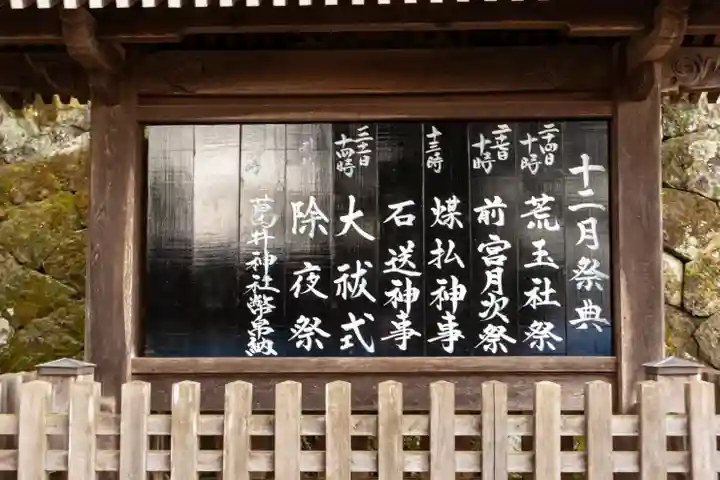 十二月祭典
二十四日 十時 荒玉社祭
二十七日 十時 前宮月次祭
十三時 煤払神事
石送神事
三十一日 十四時 大祓式
除夜祭
葛井神社幣帛納